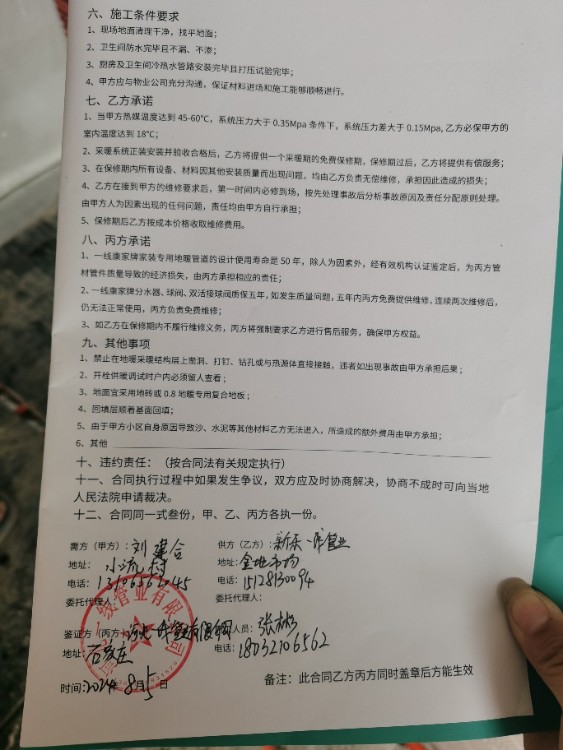 六、施工条件要求
1、现场地面清理干净，找平地面；
2、卫生间防水完毕且不漏、不渗；
3、厨房及卫生间冷热水管路安装完毕且打压试验完毕；
4、甲方应与物业公司充分沟通，保证材料进场和施工能够顺畅进行。
七、乙方承诺
1、当甲方热媒温度达到 45-60℃，系统压力大于 0.35Mpa 条件下，系统压力差大于 0.15Mpa, 乙方必保甲方的
室内温度达到 18℃；
2、采暖系统正装安装并验收合格后，乙方将提供一个采暖期的免费保修期，保修期过后，乙方将提供有偿服务；
3、在保修期内所有设备、材料因其他安装质量而出现问题，均由乙方负责无偿维修，承担因此造成的损失；
4、乙方在接到甲方的维修要求后，第一时间内必修到场，按先处理事故后分析事故原因及责任分配原则处理。
由甲方人为因素出现的任何问题，责任均由甲方自行承担；
5、保修期后乙方按成本价格收取维修费用。
八、丙方承诺
1、一线康家牌家装专用地暖管道的设计使用寿命是 50 年，除人为因素外，经有效机构认证鉴定后，为丙方管
材管件质量导致的经济损失，由丙方承担相应的责任；
2、一线康家牌分水器、球阀、双活接球阀质保五年，如发生质量问题，五年内丙方免费提供维修，连续两次维修后，
仍无法正常使用，丙方负责免费维修；
3、如乙方在保修期内不履行维修义务，丙方将强制要求乙方进行售后服务，确保甲方权益。
九、其他事项
1、禁止在地暖采暖结构层上凿洞、打钉、钻孔或与热源体直接接触，违者如出现事故由甲方承担后果；
2、开栓供暖调试时户内必须留人查看；
3、地面宜采用地砖或 0.8 地暖专用复合地板；
4、回填层顺着基面回填；
5、由于甲方小区自身原因导致沙、水泥等其他材料乙方无法进入，所造成的额外费用由甲方承担；
6、其他
十、违约责任：（按合同法有关规定执行）
十一、合同执行过程中如果发生争议，双方应及时协商解决，协商不成时可向当地
人民法院申请裁决。
十二、合同同一式叁份，甲、乙、丙方各执一份。
需方（甲方）：刘建合 供方（乙方）：新乐一管业
地址：小流村 地址：金地市场
电话： 电话：15128130094
委托代理人： 委托代理人：
鉴证方（丙方 人员：张彬
地址：石家庄 电话：18032106562
时间：2024年8月5日 备注：此合同乙方丙方同时盖章后方能生效
管业有限公司